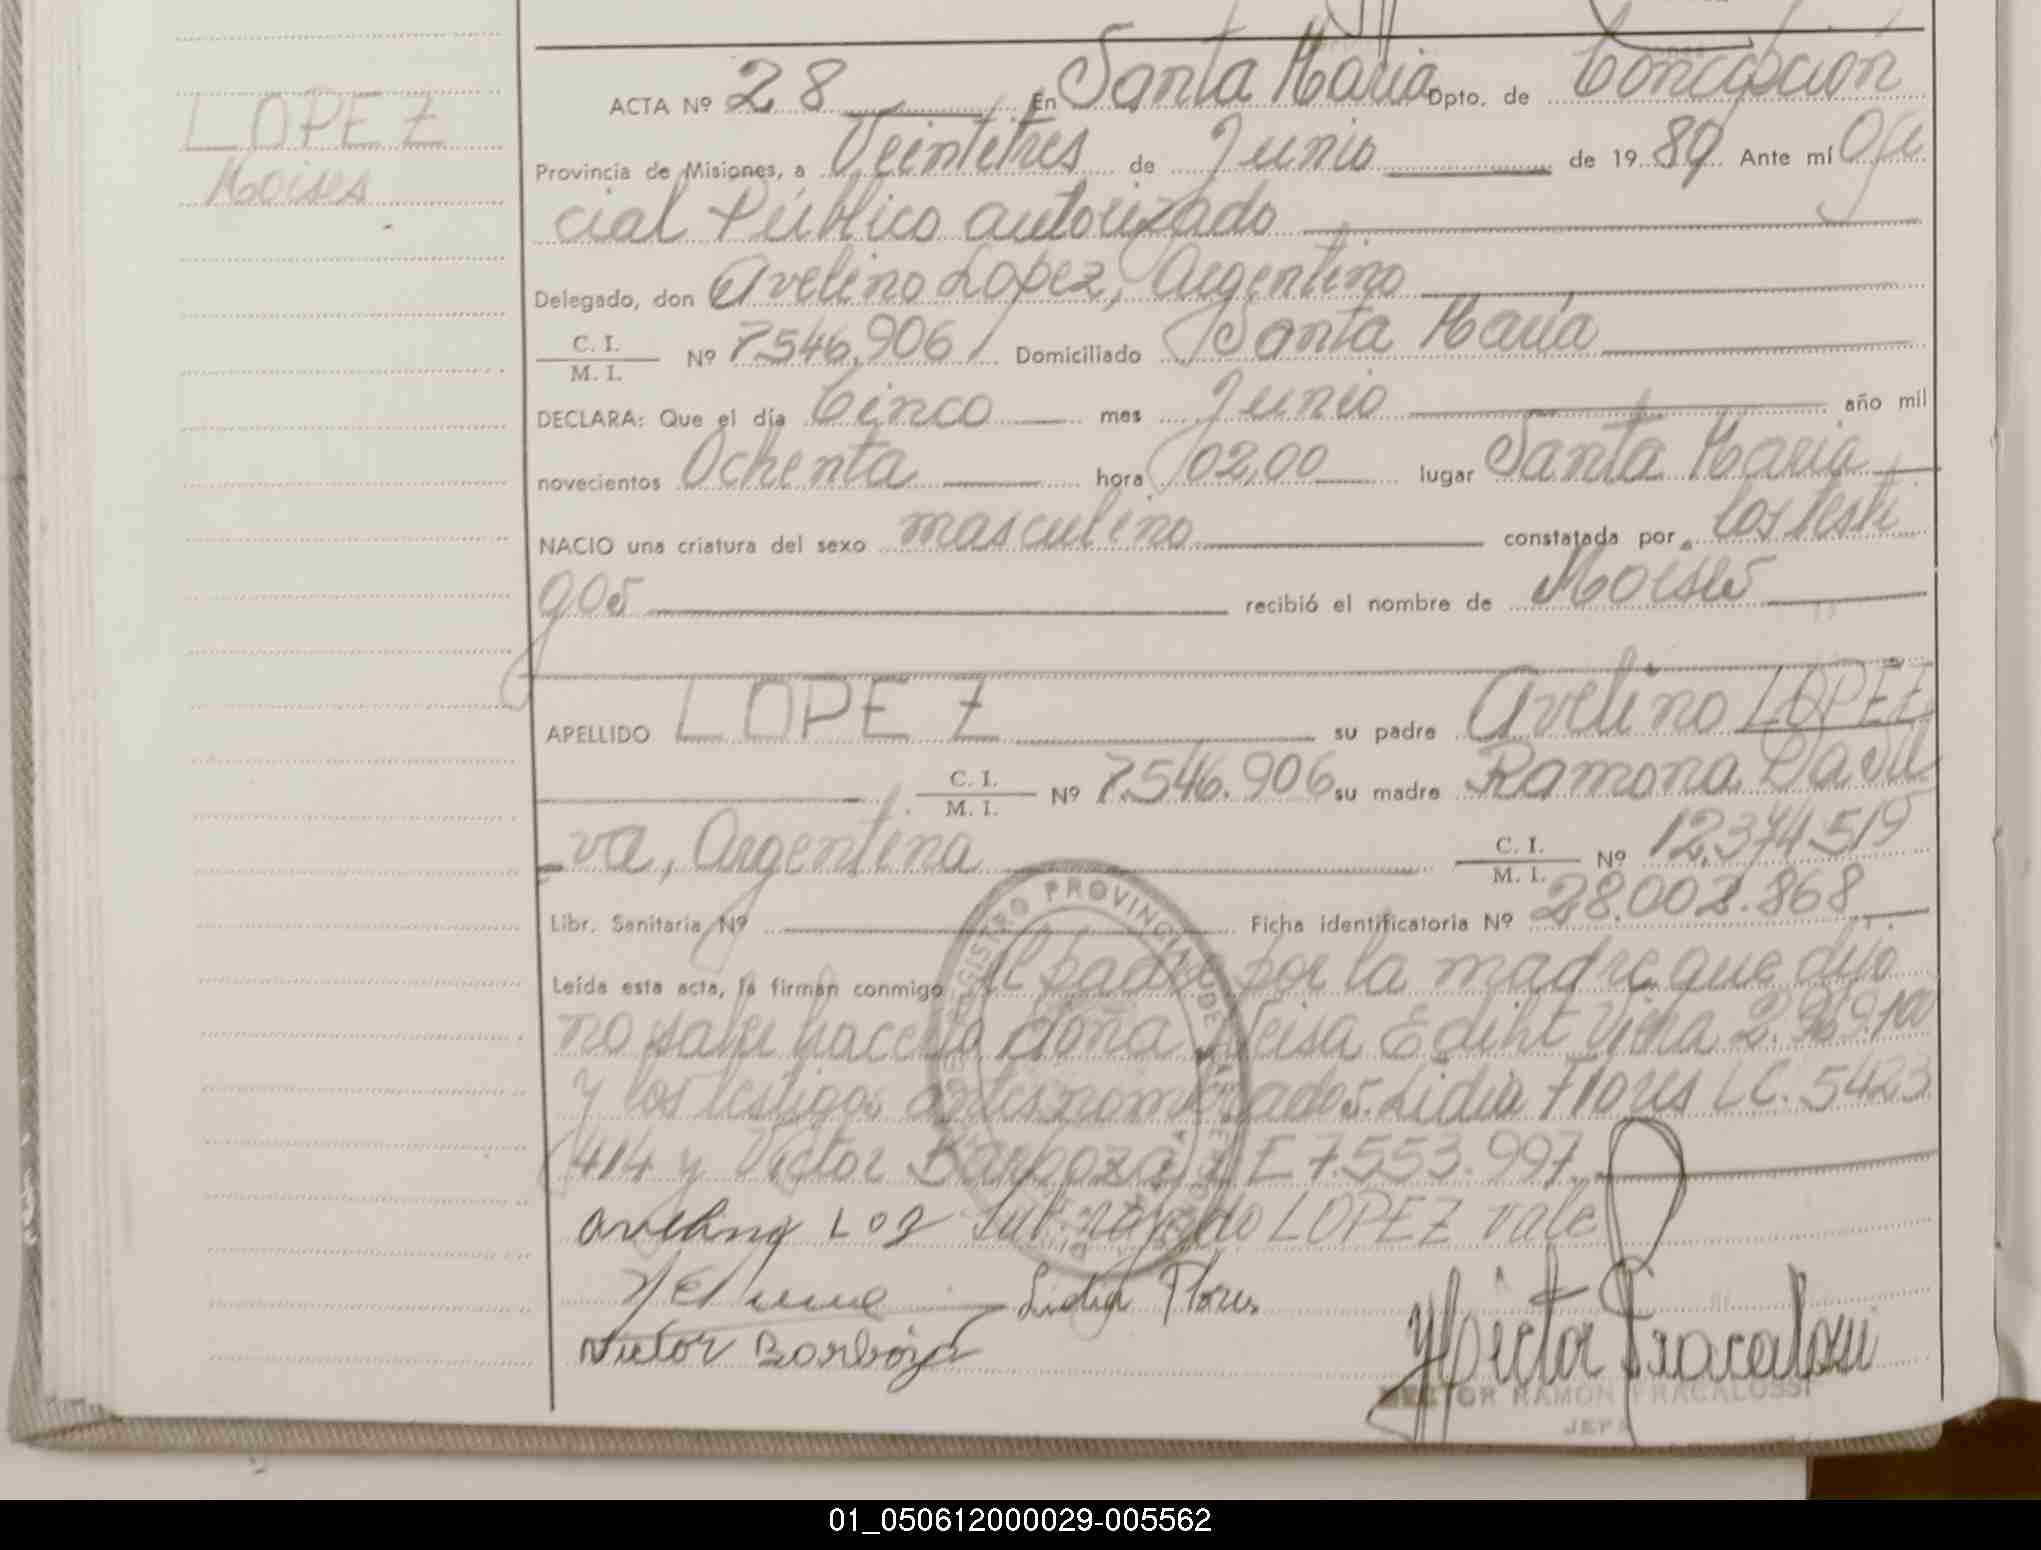 LOPEZ
Moises
ACTA Nº 28 En Santa Maria Dpto. de Concepción
Provincia de Misiones, a Veintetres de Junio de 1980 Ante mí Ofi
cial Público autorizado
Delegado, don Avelino Lopez, Argentino
C. I.
M. I. Nº 7.546.906 Domiciliado Santa María
DECLARA: Que el día Cinco mes Junio año mil
novecientos Ochenta hora 02,00 lugar Santa Maria
NACIO una criatura del sexo masculino constatada por los testi
gos recibió el nombre de Moises
APELLIDO LOPEZ su padre Avelino LOPEZ
C. I.
M. I. Nº 7.546.906 su madre Ramona Da Sil
va, Argentina C. I.
M. I. Nº 12.374.519
Libr. Sanitaria Nº Ficha identificatoria Nº 28.002.868
Leída esta acta, la firman conmigo el padre por la madre que dijo
no sabe hacerlo doña Ediht
y los testigos antes nombrados. Lidia Flores LC. 5423
414 y Victor Barboza LE 7.553.997.
Avelino Subrayado LOPEZ vale
Lidia Flores
Victor Barboza
Hector Fracalossi
HECTOR RAMON FRACALOSSI
JEFE
REGISTRO PROVINCIAL DE LAS PERSONAS
01_050612000029-005562